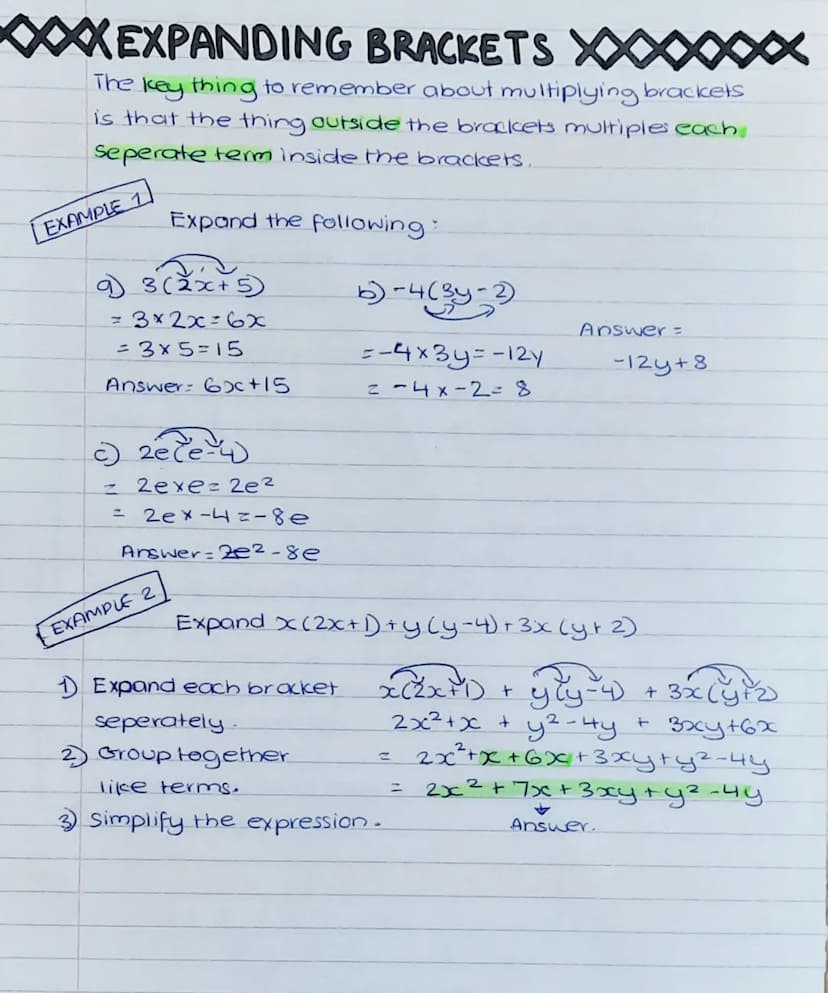 EXPANDING BRACKETS
The key thing to remember about multiplying brackets
is that the thing outside the brackets multiples each
seperate term inside the brackets.
EXAMPLE 1
Expand the following:
a) 3(2x+5)
= 3×2x=6x
= 3×5=15
Answer= 6x+15
b) -4(3y-2)
=-4×3y=-12y
= -4×-2= 8
Answer=
-12y+8
c) 2e(e-4)
= 2e×e=2e²
= 2e×-4=-8e
Answer=2e²-8e
EXAMPLE 2
Expand x(2x+1)+y(y-4)+3x(y+2)
1) Expand each bracket
seperately.
2) Group together
like terms.
3) Simplify the expression.
x(2x+1) + y(y-4) + 3x(y+2)
2x²+x + y²-4y + 3xy+6x
= 2x²+x+6x+3xy+y²-4y
= 2x²+7x+3xy+y²-4y
Answer.